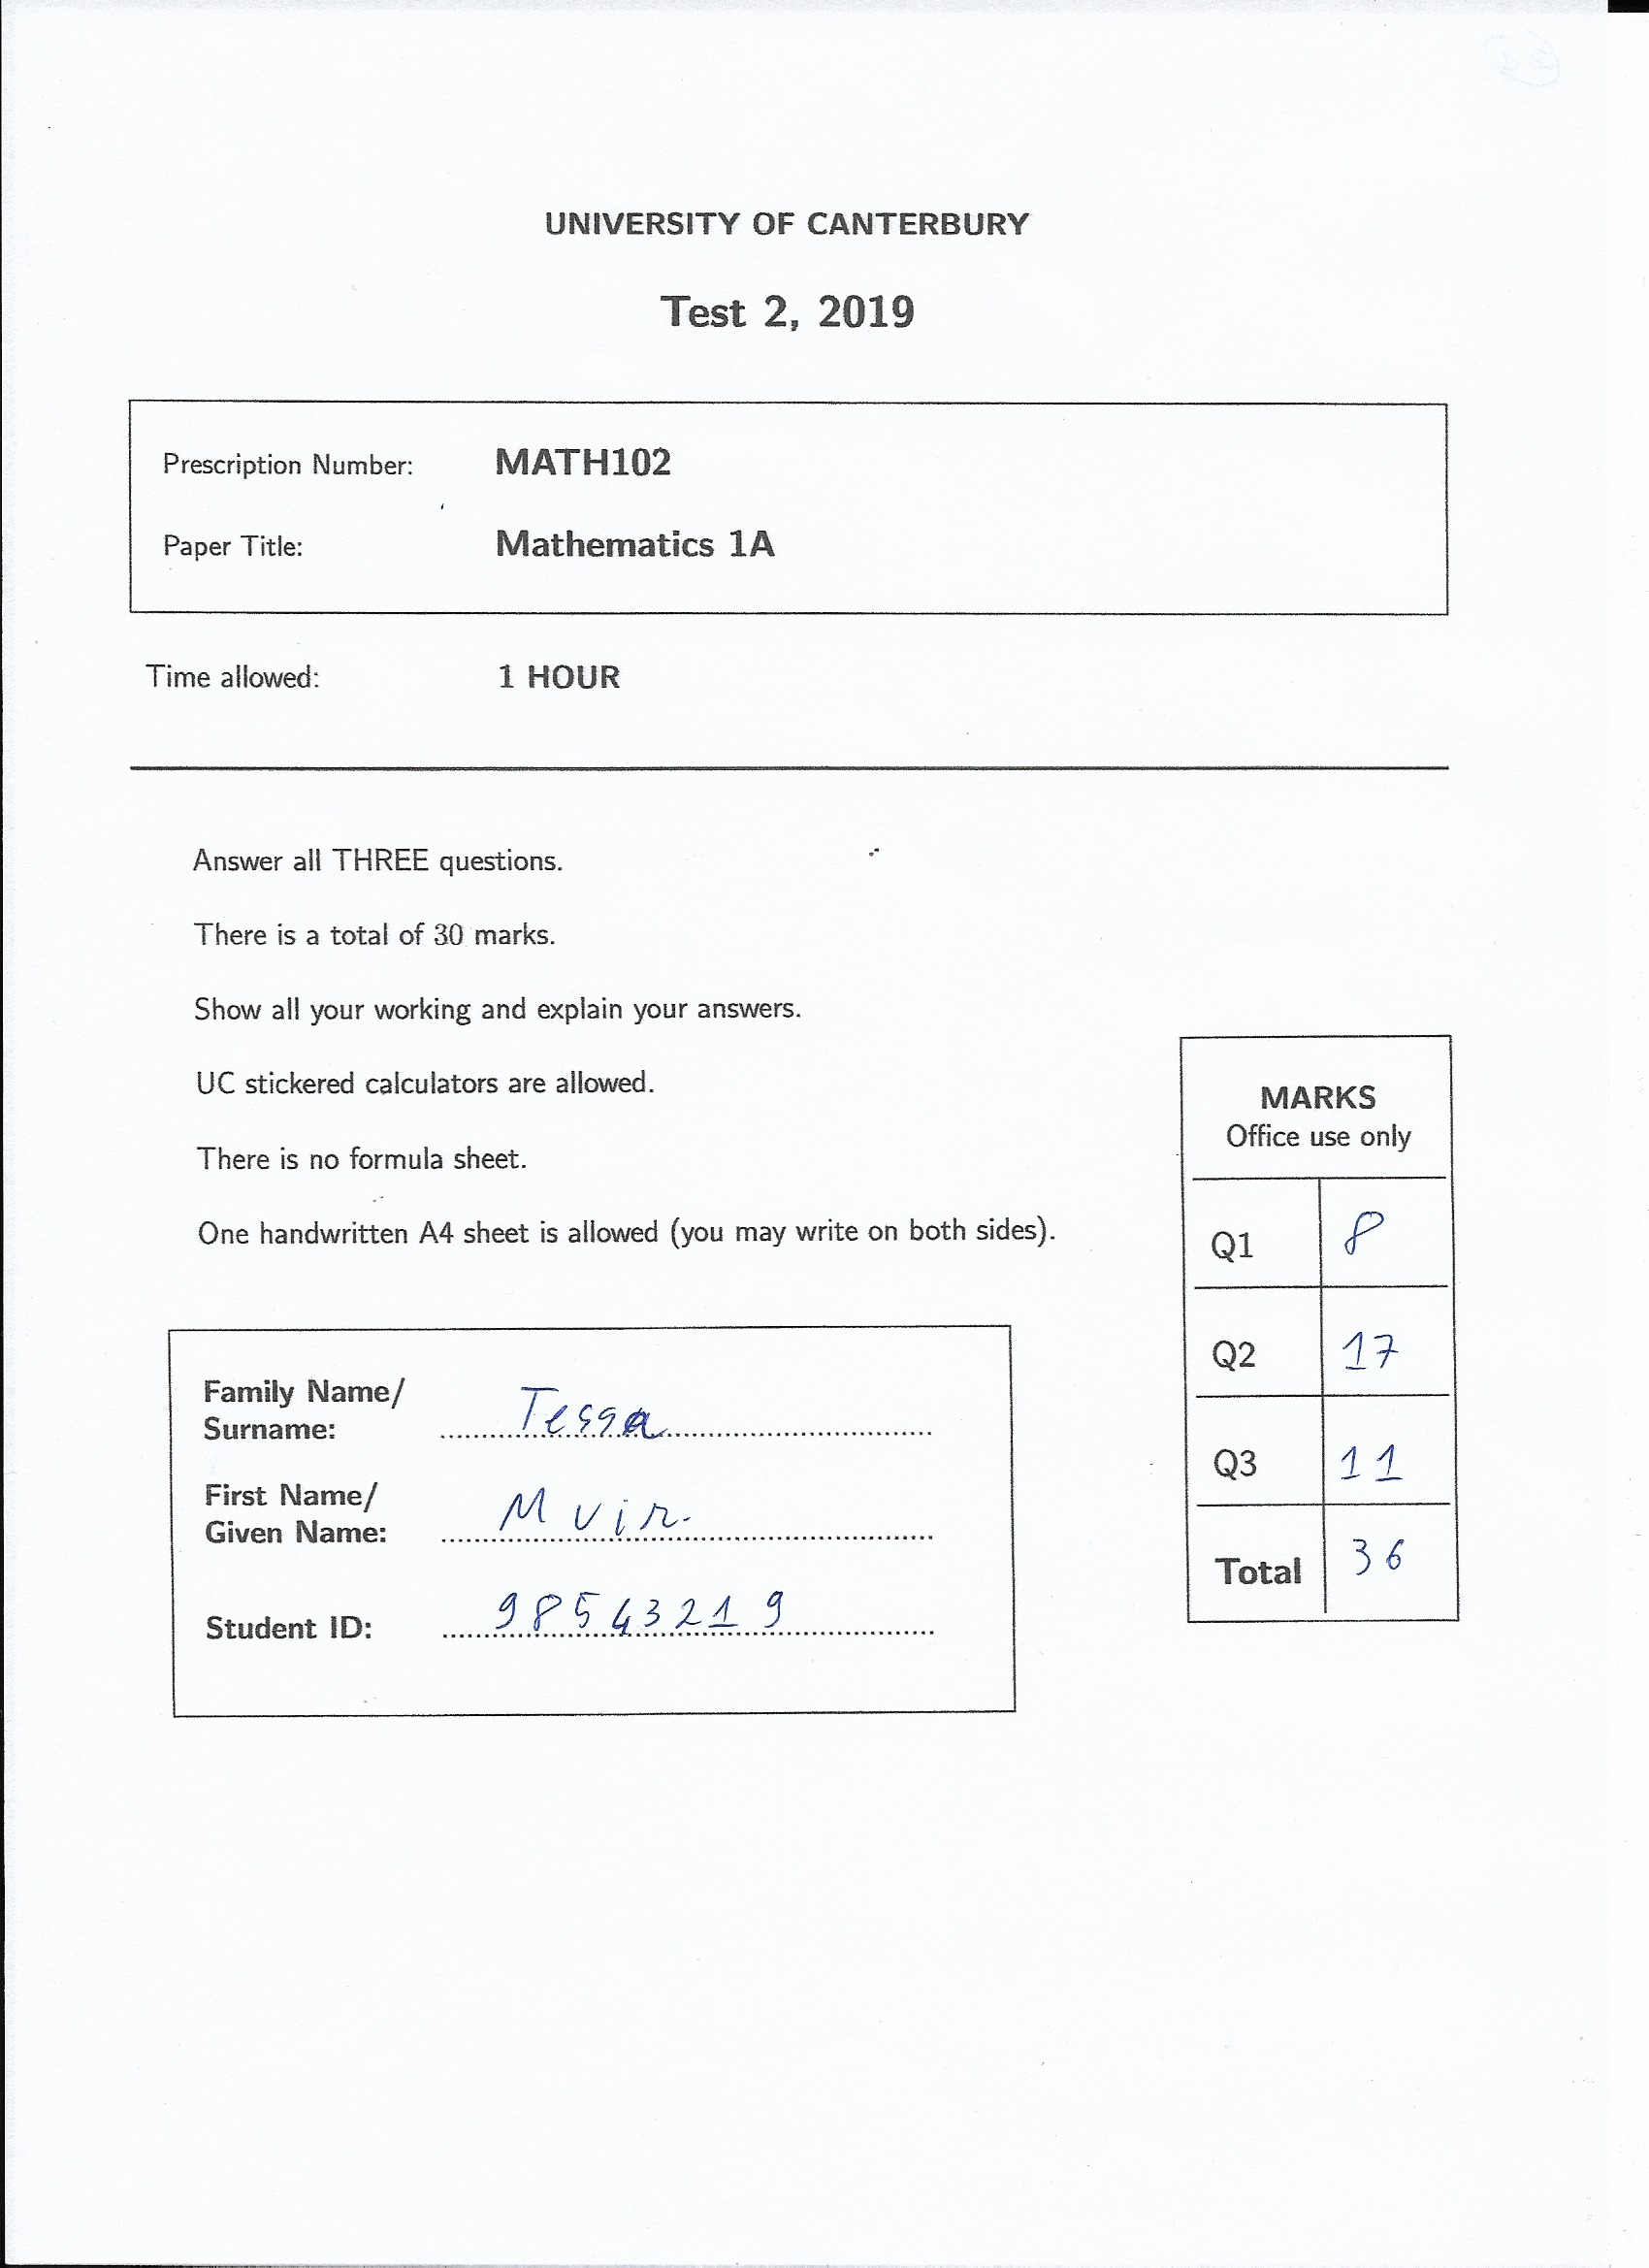 UNIVERSITY OF CANTERBURY
Test 2, 2019
Prescription Number: MATH102
Paper Title: Mathematics 1A
Time allowed: 1 HOUR
Answer all THREE questions.
There is a total of 30 marks.
Show all your working and explain your answers.
UC stickered calculators are allowed.
There is no formula sheet.
One handwritten A4 sheet is allowed (you may write on both sides).
MARKS
Office use only
Q1 8
Q2 17
Q3 11
Total 36
Family Name/
Surname: Tessa
First Name/
Given Name: Muir
Student ID: 98543219